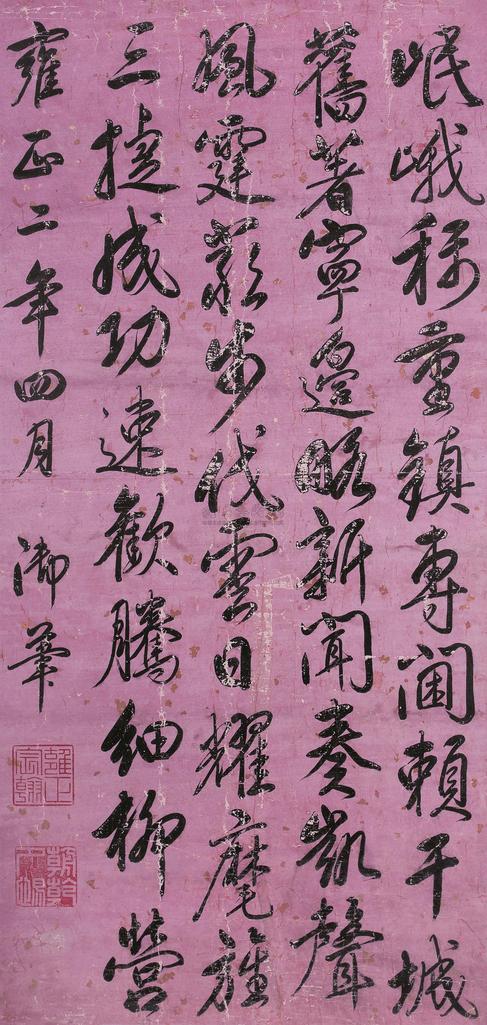 岷峨稱重鎮專閫賴干城
舊著寧邊略新聞奏凱聲
風霆嚴步伐雲日耀麾旌
三捷成功速歡騰細柳營
雍正二年四月 御筆
雍正宸翰
朝乾夕惕